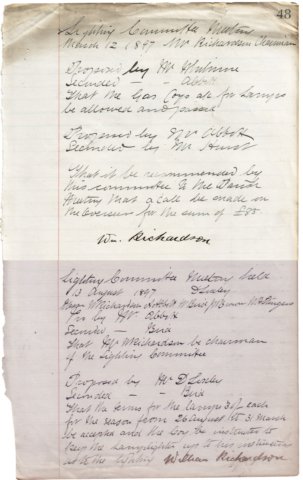 43
Lighting Committee Meeting
March 12 1897 Mr Richardson Chairman
Proposed by Mr
Seconded — Abbott
That the Gas Coys a/c for Lamps
be allowed and passed
Proposed by Mr Abbott
Seconded by Mr Hurst
That it be recommended by
this committee to the Parish
Meeting that a call be made on
the overseers for the sum of £85
Wm. Richardson
Lighting Committee Meeting held
13 August 1897
Richardson Abbott W Bird
Pro by Mr Abbott
Seconded — Bird
That Mr Richardson be chairman
of the Lighting Committee
Proposed by Mr D
Seconded — Bird
That the terms for the Lamps 36/- each
for the season from 26 august to 31 March
be accepted and the Coy be instructed to
keep the Lamplighter up to his instructions
as to the lighting William Richardson